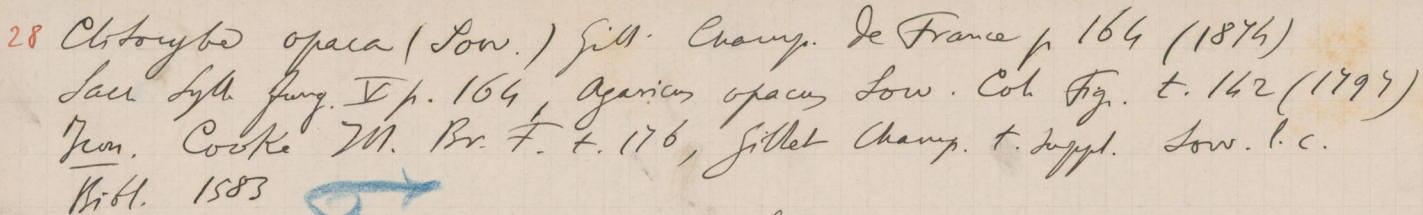 28 Clitocybe opaca (Sow.) Gill. Champ. de France p 164 (1874)
Sacc Syll. fung. V p. 164, Agaricus opacus Sow. Col. Fig. t. 142 (1797)
Icon. Cooke Ill. Br. F. t. 176, Gillet Champ. t. suppl. Sow. l. c.
Bibl. 1583